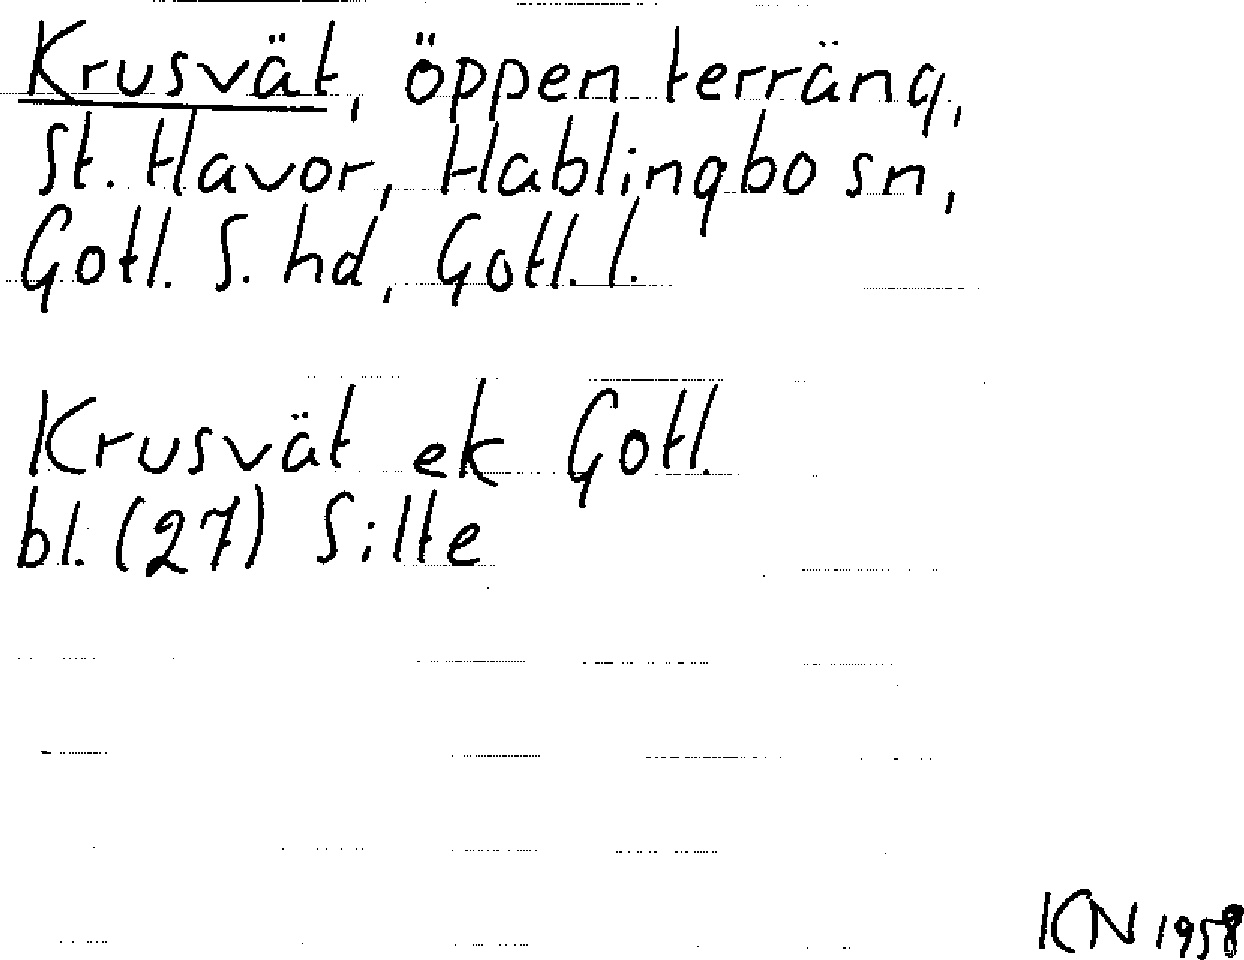 Krusvät, öppen terräng,
St. Havor, Hablingbo sn,
Gotl. S. hd, Gotl. l.
Krusvät ek Gotl.
bl. (27) Silte
KN 1958